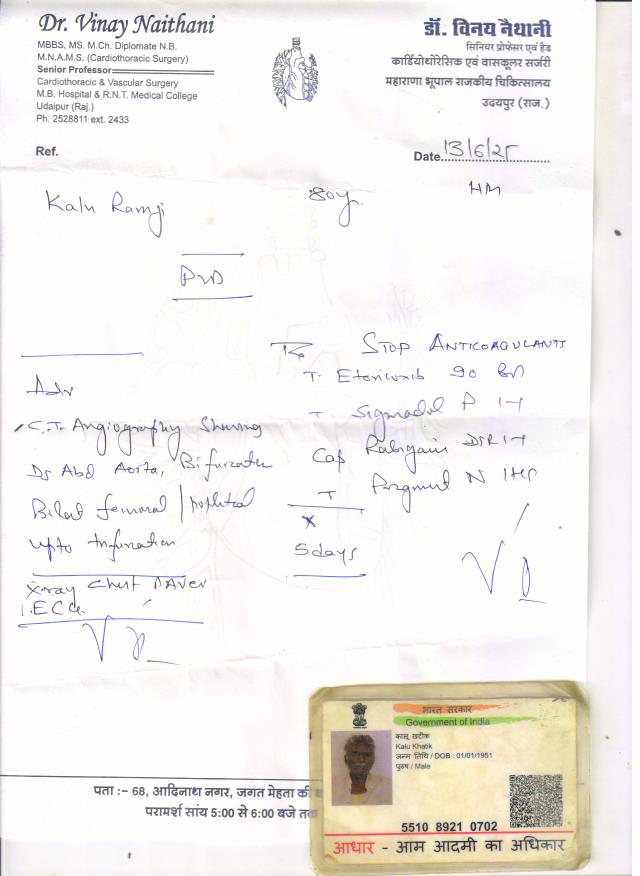 Dr. Vinay Naithani
MBBS, MS. M.Ch. Diplomate N.B.
M.N.A.M.S. (Cardiothoracic Surgery)
Senior Professor
Cardiothoracic & Vascular Surgery
M.B. Hospital & R.N.T. Medical College
Udaipur (Raj.)
Ph. 2528811 ext. 2433
डॉ. विनय नैथानी
सिनियर प्रोफेसर एवं हैड
कार्डियोथोरेसिक एवं वासकूलर सर्जरी
महाराणा भूपाल राजकीय चिकित्सालय
उदयपुर (राज.)
Ref.
Date 13/6/25
Kalu Ramji 80y
PVD
STOP ANTICOAGULANTS
T. 90
T
Cap DSR
T N
x
5 days
Adv
C.T. Angiography Showing
Abd Aorta,
Bilat femoral / popliteal
upto
X-ray Chest PA View
ECG.
पता :- 68, आदिनाथ नगर, जगत मेहता की
परामर्श सांय 5:00 से 6:00 बजे तक
भारत सरकार
Government of India
कालू खटीक
Kalu Khatik
जन्म तिथि / DOB : 01/01/1951
पुरुष / Male
5510 8921 0702
आधार - आम आदमी का अधिकार